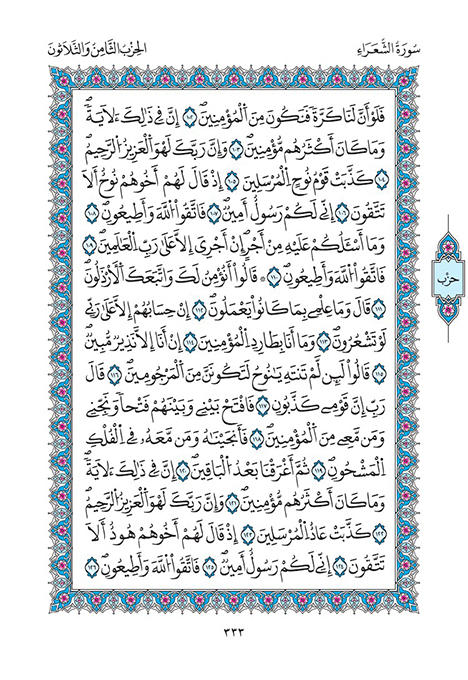 سُورَةُ الشُّعَرَاءِ
الحِزْبُ الثَّامِنُ وَالثَّلَاثُونَ
فَلَوْ أَنَّ لَنَا كَرَّةً فَنَكُونَ مِنَ ٱلْمُؤْمِنِينَ ١٠٢ إِنَّ فِي ذَٰلِكَ لَأٓيَةً
وَمَا كَانَ أَكْثَرُهُم مُّؤْمِنِينَ ١٠٣ وَإِنَّ رَبَّكَ لَهُوَ ٱلْعَزِيزُ ٱلرَّحِيمُ
١٠٤ كَذَّبَتْ قَوْمُ نُوحٍ ٱلْمُرْسَلِينَ ١٠٥ إِذْ قَالَ لَهُمْ أَخُوهُمْ نُوحٌ أَلَا
تَتَّقُونَ ١٠٦ إِنِّي لَكُمْ رَسُولٌ أَمِينٌ ١٠٧ فَٱتَّقُوا۟ ٱللَّهَ وَأَطِيعُونِ ١٠٨
وَمَا أَسْـَٔلُكُمْ عَلَيْهِ مِنْ أَجْرٍ إِنْ أَجْرِىَ إِلَّا عَلَىٰ رَبِّ ٱلْعَٰلَمِينَ ١٠٩
فَٱتَّقُوا۟ ٱللَّهَ وَأَطِيعُونِ ١١٠ ۞ قَالُوا۟ أَنُؤْمِنُ لَكَ وَٱتَّبَعَكَ ٱلْأَرْذَلُونَ
١١١ قَالَ وَمَا عِلْمِى بِمَا كَانُوا۟ يَعْمَلُونَ ١١٢ إِنْ حِسَابُهُمْ إِلَّا عَلَىٰ رَبِّى
لَوْ تَشْعُرُونَ ١١٣ وَمَا أَنَا۠ بِطَارِدِ ٱلْمُؤْمِنِينَ ١١٤ إِنْ أَنَا۠ إِلَّا نَذِيرٌ مُّبِينٌ
١١٥ قَالُوا۟ لَئِن لَّمْ تَنتَهِ يَٰنُوحُ لَتَكُونَنَّ مِنَ ٱلْمَرْجُومِينَ ١١٦ قَالَ
رَبِّ إِنَّ قَوْمِى كَذَّبُونِ ١١٧ فَٱفْتَحْ بَيْنِى وَبَيْنَهُمْ فَتْحًا وَنَجِّنِى
وَمَن مَّعِىَ مِنَ ٱلْمُؤْمِنِينَ ١١٨ فَأَنجَيْنَٰهُ وَمَن مَّعَهُۥ فِى ٱلْفُلْكِ
ٱلْمَشْحُونِ ١١٩ ثُمَّ أَغْرَقْنَا بَعْدُ ٱلْبَاقِينَ ١٢٠ إِنَّ فِى ذَٰلِكَ لَأٓيَةً
وَمَا كَانَ أَكْثَرُهُم مُّؤْمِنِينَ ١٢١ وَإِنَّ رَبَّكَ لَهُوَ ٱلْعَزِيزُ ٱلرَّحِيمُ
١٢٢ كَذَّبَتْ عَادٌ ٱلْمُرْسَلِينَ ١٢٣ إِذْ قَالَ لَهُمْ أَخُوهُمْ هُودٌ أَلَا
تَتَّقُونَ ١٢٤ إِنِّى لَكُمْ رَسُولٌ أَمِينٌ ١٢٥ فَٱتَّقُوا۟ ٱللَّهَ وَأَطِيعُونِ ١٢٦
حزب
٣٣٣